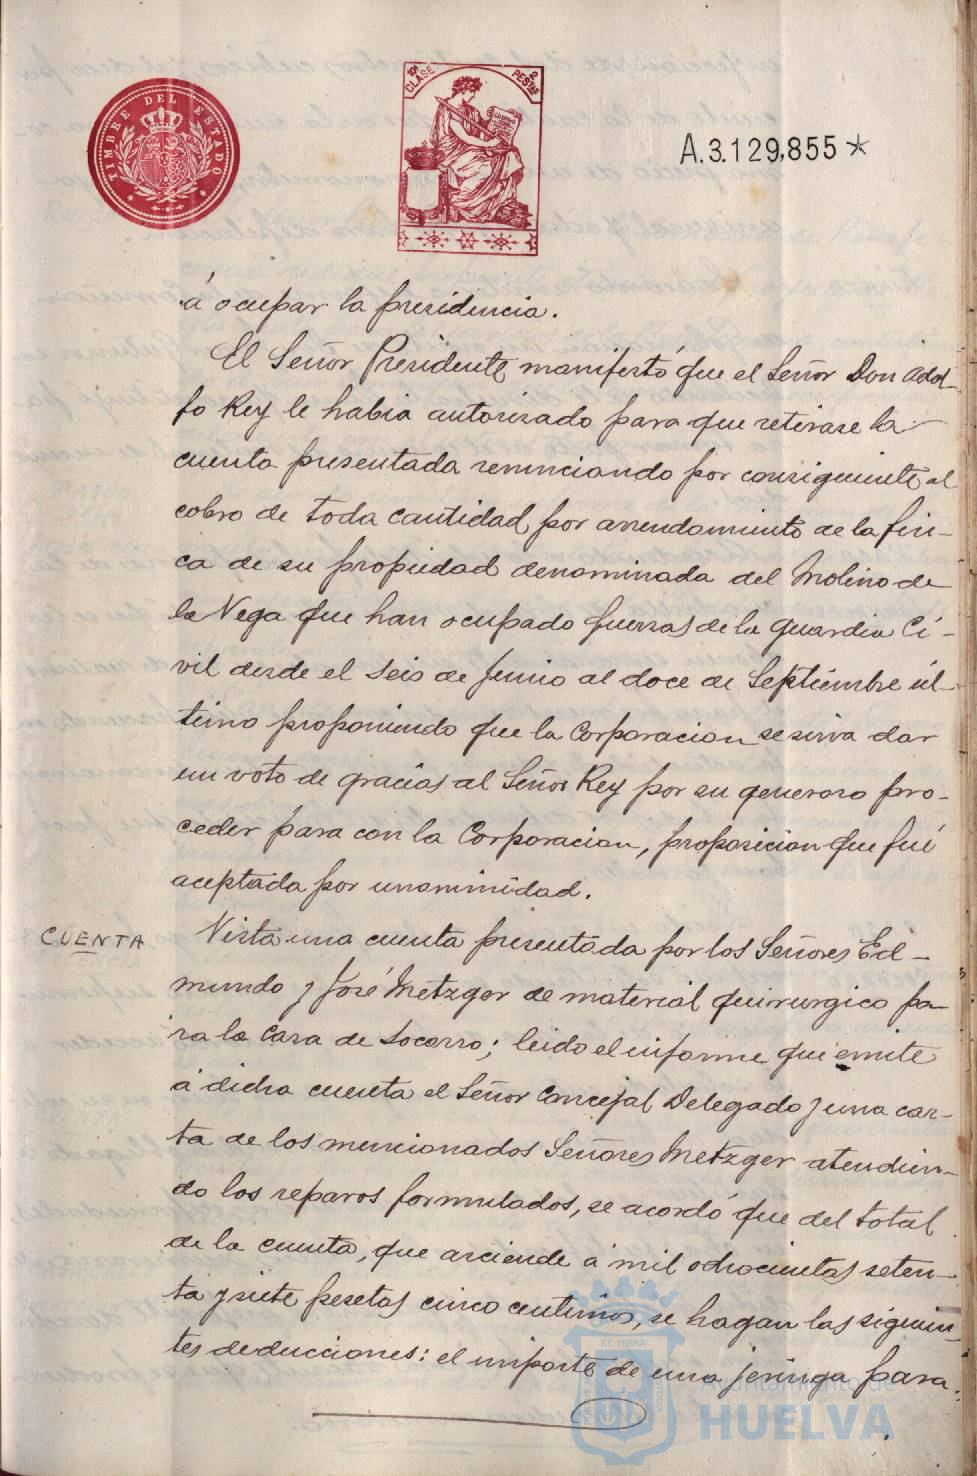 TIMBRE DEL ESTADO
10ª CLASE
2 PESTAS
A.3.129,855 *
á ocupar la presidencia.
El Señor Presidente manifestó que el Señor Don Adol-
fo Rey le habia autorisado para que retirase la
cuenta presentada renunciando por consiguiente al
cobro de toda cantidad por arrendamiento de la fin-
ca de su propiedad denominada del Molino de
la Vega que han ocupado fuerzas de la Guardia Ci-
vil desde el seis de Junio al doce de Septiembre úl-
timo proponiendo que la Corporacion se sirva dar
un voto de gracias al Señor Rey por su generoso pro-
ceder para con la Corporacion, proposicion que fué
aceptada por unanimidad.
CUENTA
Vista una cuenta presentada por los Señores Ed-
mundo y José Metzger de material quirurgico pa-
ra la Casa de Socorro; leido el informe que emite
á dicha cuenta el Señor Concejal Delegado y una car-
ta de los mencionados Señores Metzger atendien-
do los reparos formulados, se acordó que del total
de la cuenta, que asciende á mil ochocientas seten-
ta y siete pesetas cinco centimos, se hagan las siguien-
tes deducciones: el importe de una jeringa para
Ayuntamiento de
HUELVA